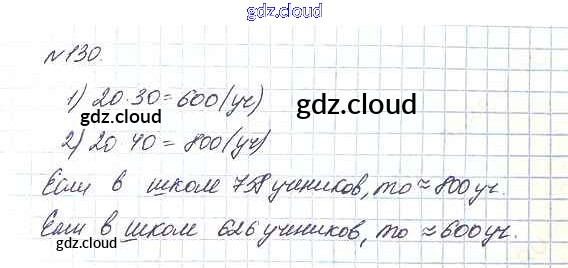 gdz.cloud
№130.
1) 20·30=600(уч)
gdz.cloud
gdz.cloud
2) 20 40 = 800(уч)
Если в школе 758 учеников, то ≈ 800 уч.
Если в школе 626 учеников, то ≈ 600 уч.
gdz.cloud
gdz.cloud